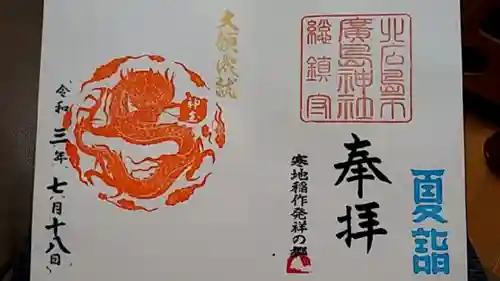 北広島市
廣島神社
総鎮守
夏詣
奉拝
寒地稲作発祥の郷
大願成就
神玉
令和三年七月十八日